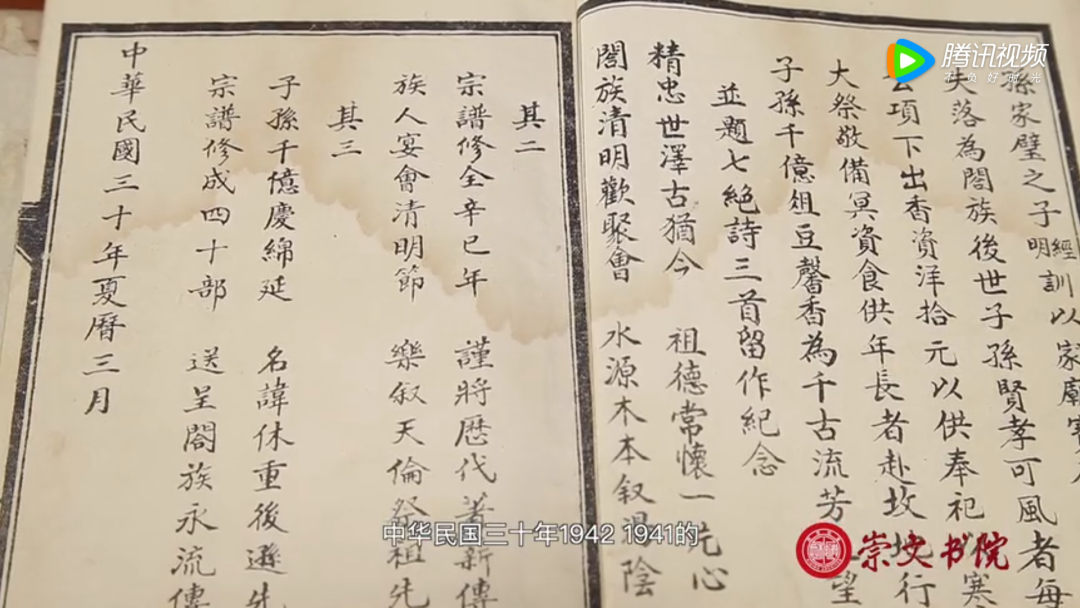 孫家璧之子經訓以家廟
明
失落為閤族後世子孫賢孝可風者每
項下出香資洋拾元以供奉祀
大祭敬備冥資食供年長者赴坟地行
子孫千億俎豆馨香為千古流芳
並題七絕詩三首留作紀念
精忠世澤古猶今 祖德常懷一
閤族清明歡聚會 水源木本叙湯陰
其二
宗譜修全辛巳年 謹將歷代著新傳
族人宴會清明節 樂叙天倫祭祖先
其三
子孫千億慶綿延 名諱休重後遜先
宗譜修成四十部 送呈閤族永流傳
中華民國三十年夏曆三月
腾讯视频
不负好时光
中华民国三十年1942 1941的
崇文书院